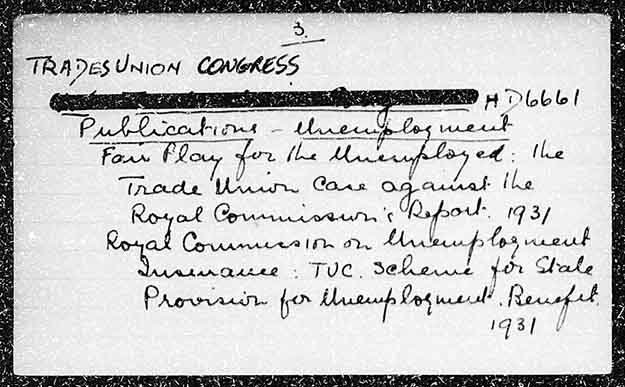 3.
TRADES UNION CONGRESS
HD6661
Publications - Unemployment
Fair Play for the Unemployed: the
Trade Union Case against the
Royal Commission's Report. 1931
Royal Commission on Unemployment
Insurance: TUC. Scheme for State
Provision for Unemployment. Benefit.
1931